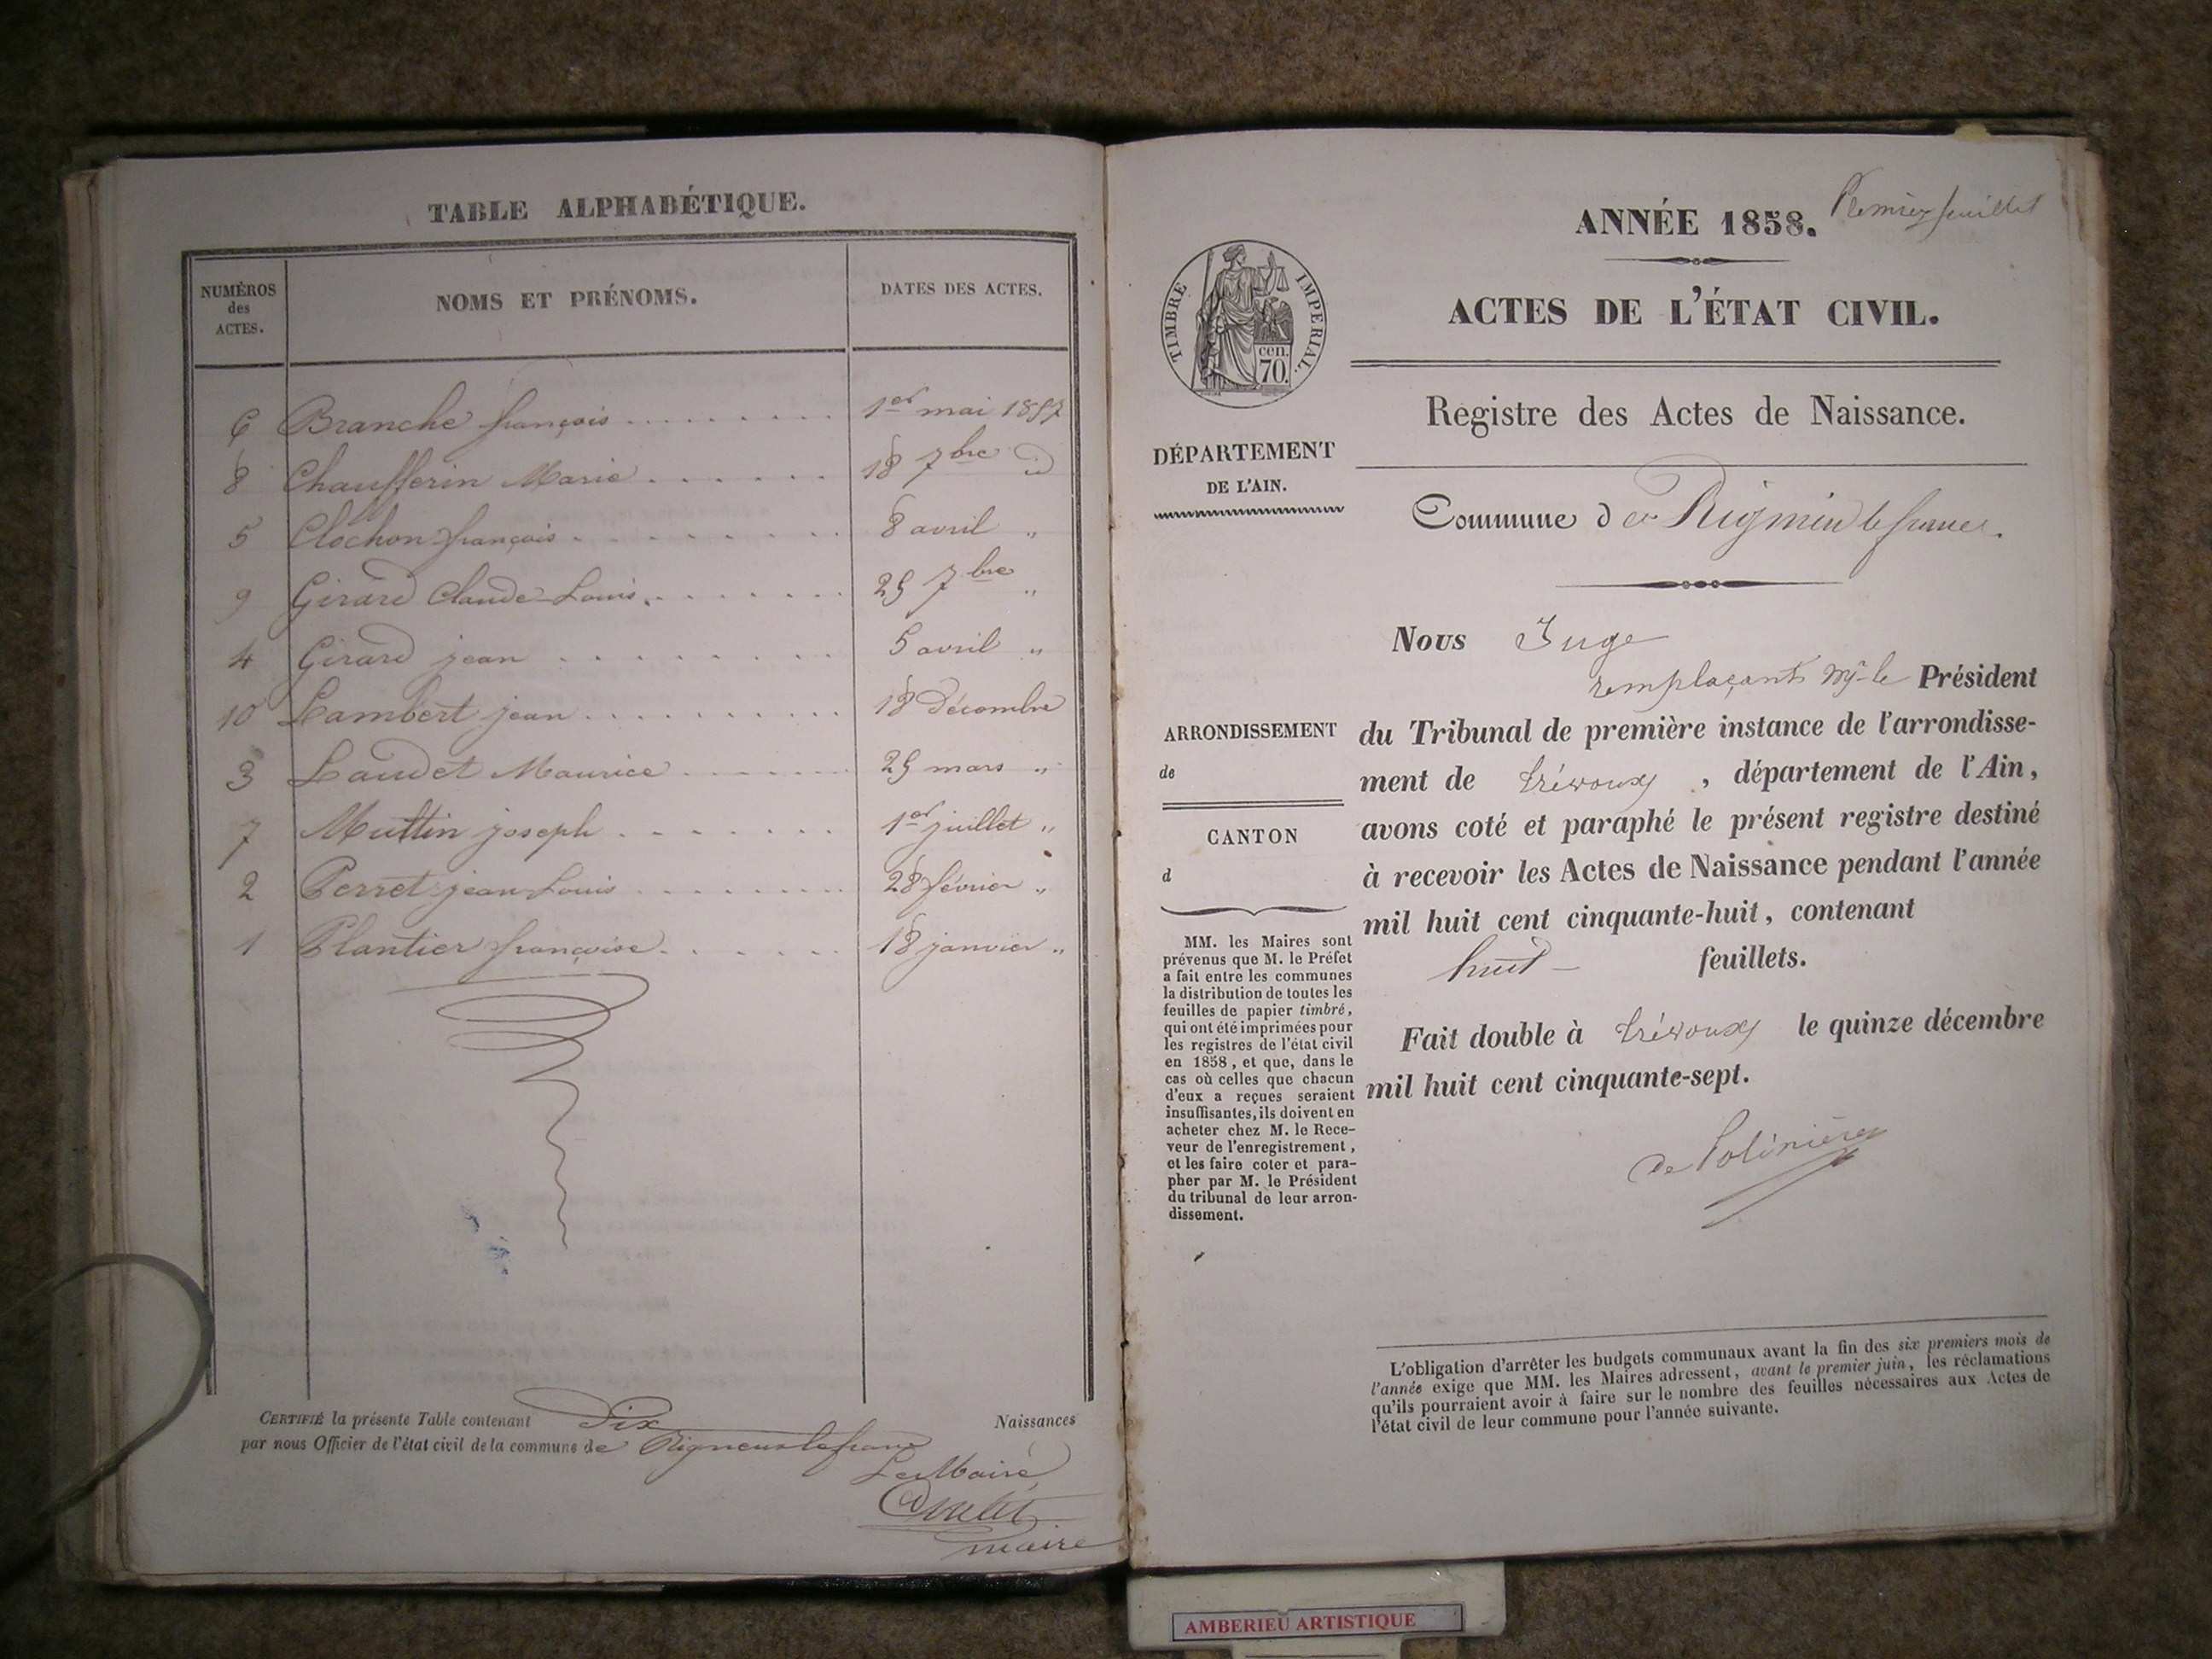 TABLE ALPHABÉTIQUE.
NUMÉROS
des
ACTES.
NOMS ET PRÉNOMS.
DATES DES ACTES.
6 Branche françois 1er mai 1857
8 Chaufferin Marie 18 7bre id
5 Clochon françois 8 avril "
9 Girard Claude Louis 25 7bre "
4 Girard jean 5 avril "
10 Lambert jean 18 décembre
3 Laudet Maurice 25 mars "
7 Muttin joseph 1er juillet "
2 Perret jean Louis 28 février "
1 Plantier françoise 18 janvier "
CERTIFIÉ la présente Table contenant Dix Naissances
par nous Officier de l'état civil de la commune de Rigneux le franc
Le Maire
maire
Premier feuillet
ANNÉE 1858.
ACTES DE L'ÉTAT CIVIL.
Registre des Actes de Naissance.
TIMBRE IMPERIAL.
cen.
70.
DÉPARTEMENT
DE L'AIN.
Commune de Rignieu le franc.
Nous Juge
remplaçant Mr le Président
du Tribunal de première instance de l'arrondisse-
ment de trévoux, département de l'Ain,
avons coté et paraphé le présent registre destiné
à recevoir les Actes de Naissance pendant l'année
mil huit cent cinquante-huit, contenant
huit feuillets.
Fait double à trévoux le quinze décembre
mil huit cent cinquante-sept.
de Polinière
ARRONDISSEMENT
de
CANTON
d
MM. les Maires sont
prévenus que M. le Préfet
a fait entre les communes
la distribution de toutes les
feuilles de papier timbré,
qui ont été imprimées pour
les registres de l'état civil
en 1858, et que, dans le
cas où celles que chacun
d'eux a reçues seraient
insuffisantes, ils doivent en
acheter chez M. le Rece-
veur de l'enregistrement,
et les faire coter et para-
pher par M. le Président
du tribunal de leur arron-
dissement.
L'obligation d'arrêter les budgets communaux avant la fin des six premiers mois de
l'année exige que MM. les Maires adressent, avant le premier juin, les réclamations
qu'ils pourraient avoir à faire sur le nombre des feuilles nécessaires aux Actes de
l'état civil de leur commune pour l'année suivante.
AMBERIEU ARTISTIQUE